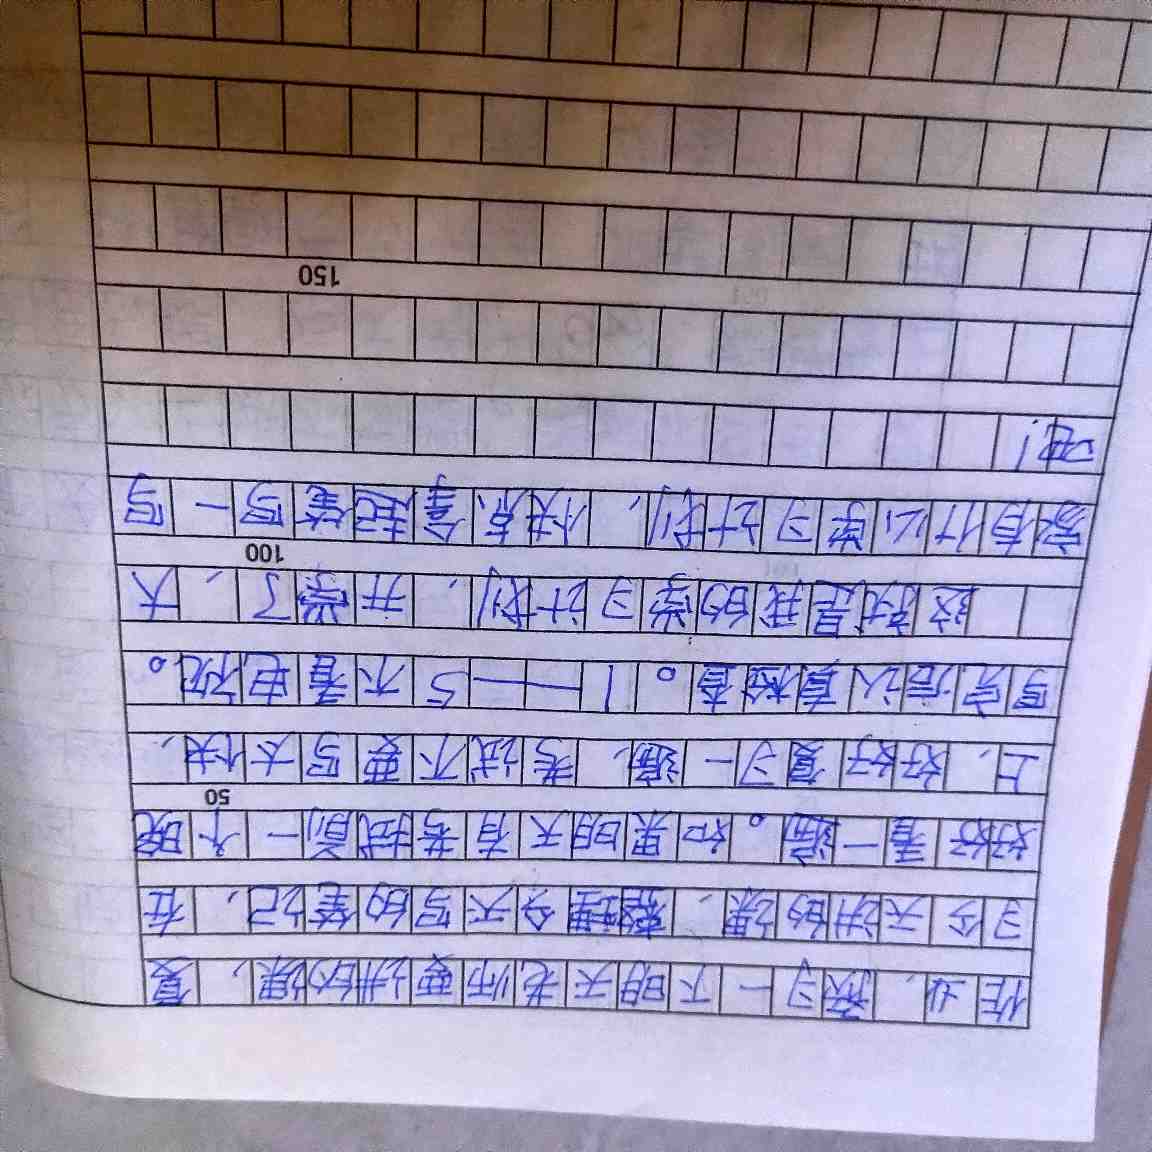 作业，预习一下明天老师要讲的课，复
习今天讲的课，整理今天写的笔记，在
好好看一遍。如果明天有考试前一个晚
50
上，好好复习一遍，考试不要写太快，
写完后认真检查。1——5不看电视。
这就是我的学习计划，开学了，大
100
家有什么学习计划，快点拿起笔写一写
吧！
150